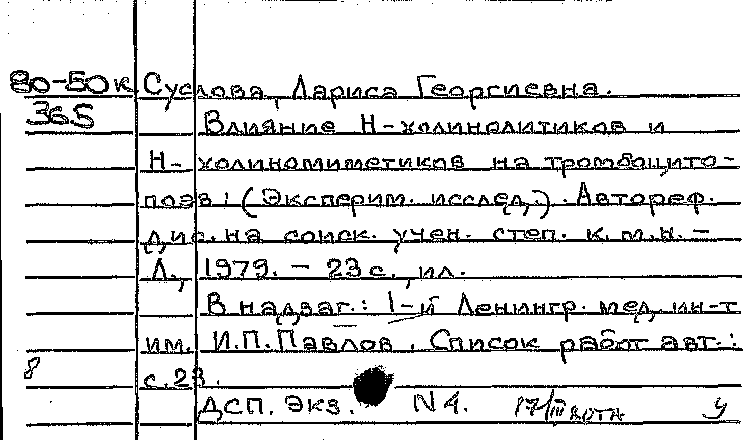 80-50к Суслова, Лариса Георгиевна.
365 Влияние Н-холинолитиков и
Н-холиномиметиков на тромбоцито-
поэз: (Эксперим. исслед.). Автореф.
дис. на соиск. учен. степ. к.м.н. -
Л., 1979. - 23 с., ил.
В надзаг.: 1-й Ленингр. мед. ин-т
им. И.П. Павлов. Список работ авт.:
8 с. 23.
ДСП. Экз. N 4. 17/III У